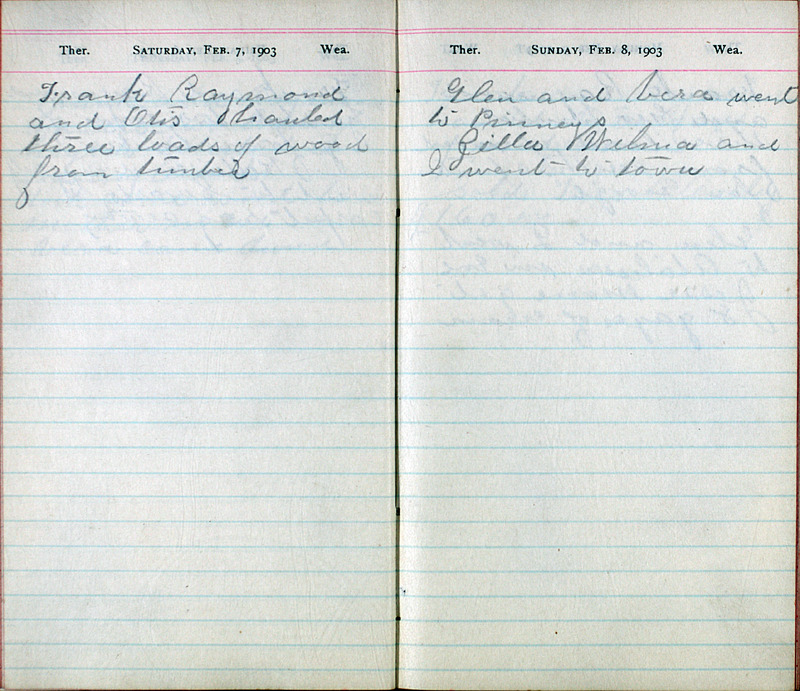 Ther. SATURDAY, FEB. 7, 1903 Wea.
Frank Raymond
and Otis hauled
three loads of wood
from timber
Ther. SUNDAY, FEB. 8, 1903 Wea.
Glen and Vera went
to Pinneys
Zilla Wilma and
I went to town